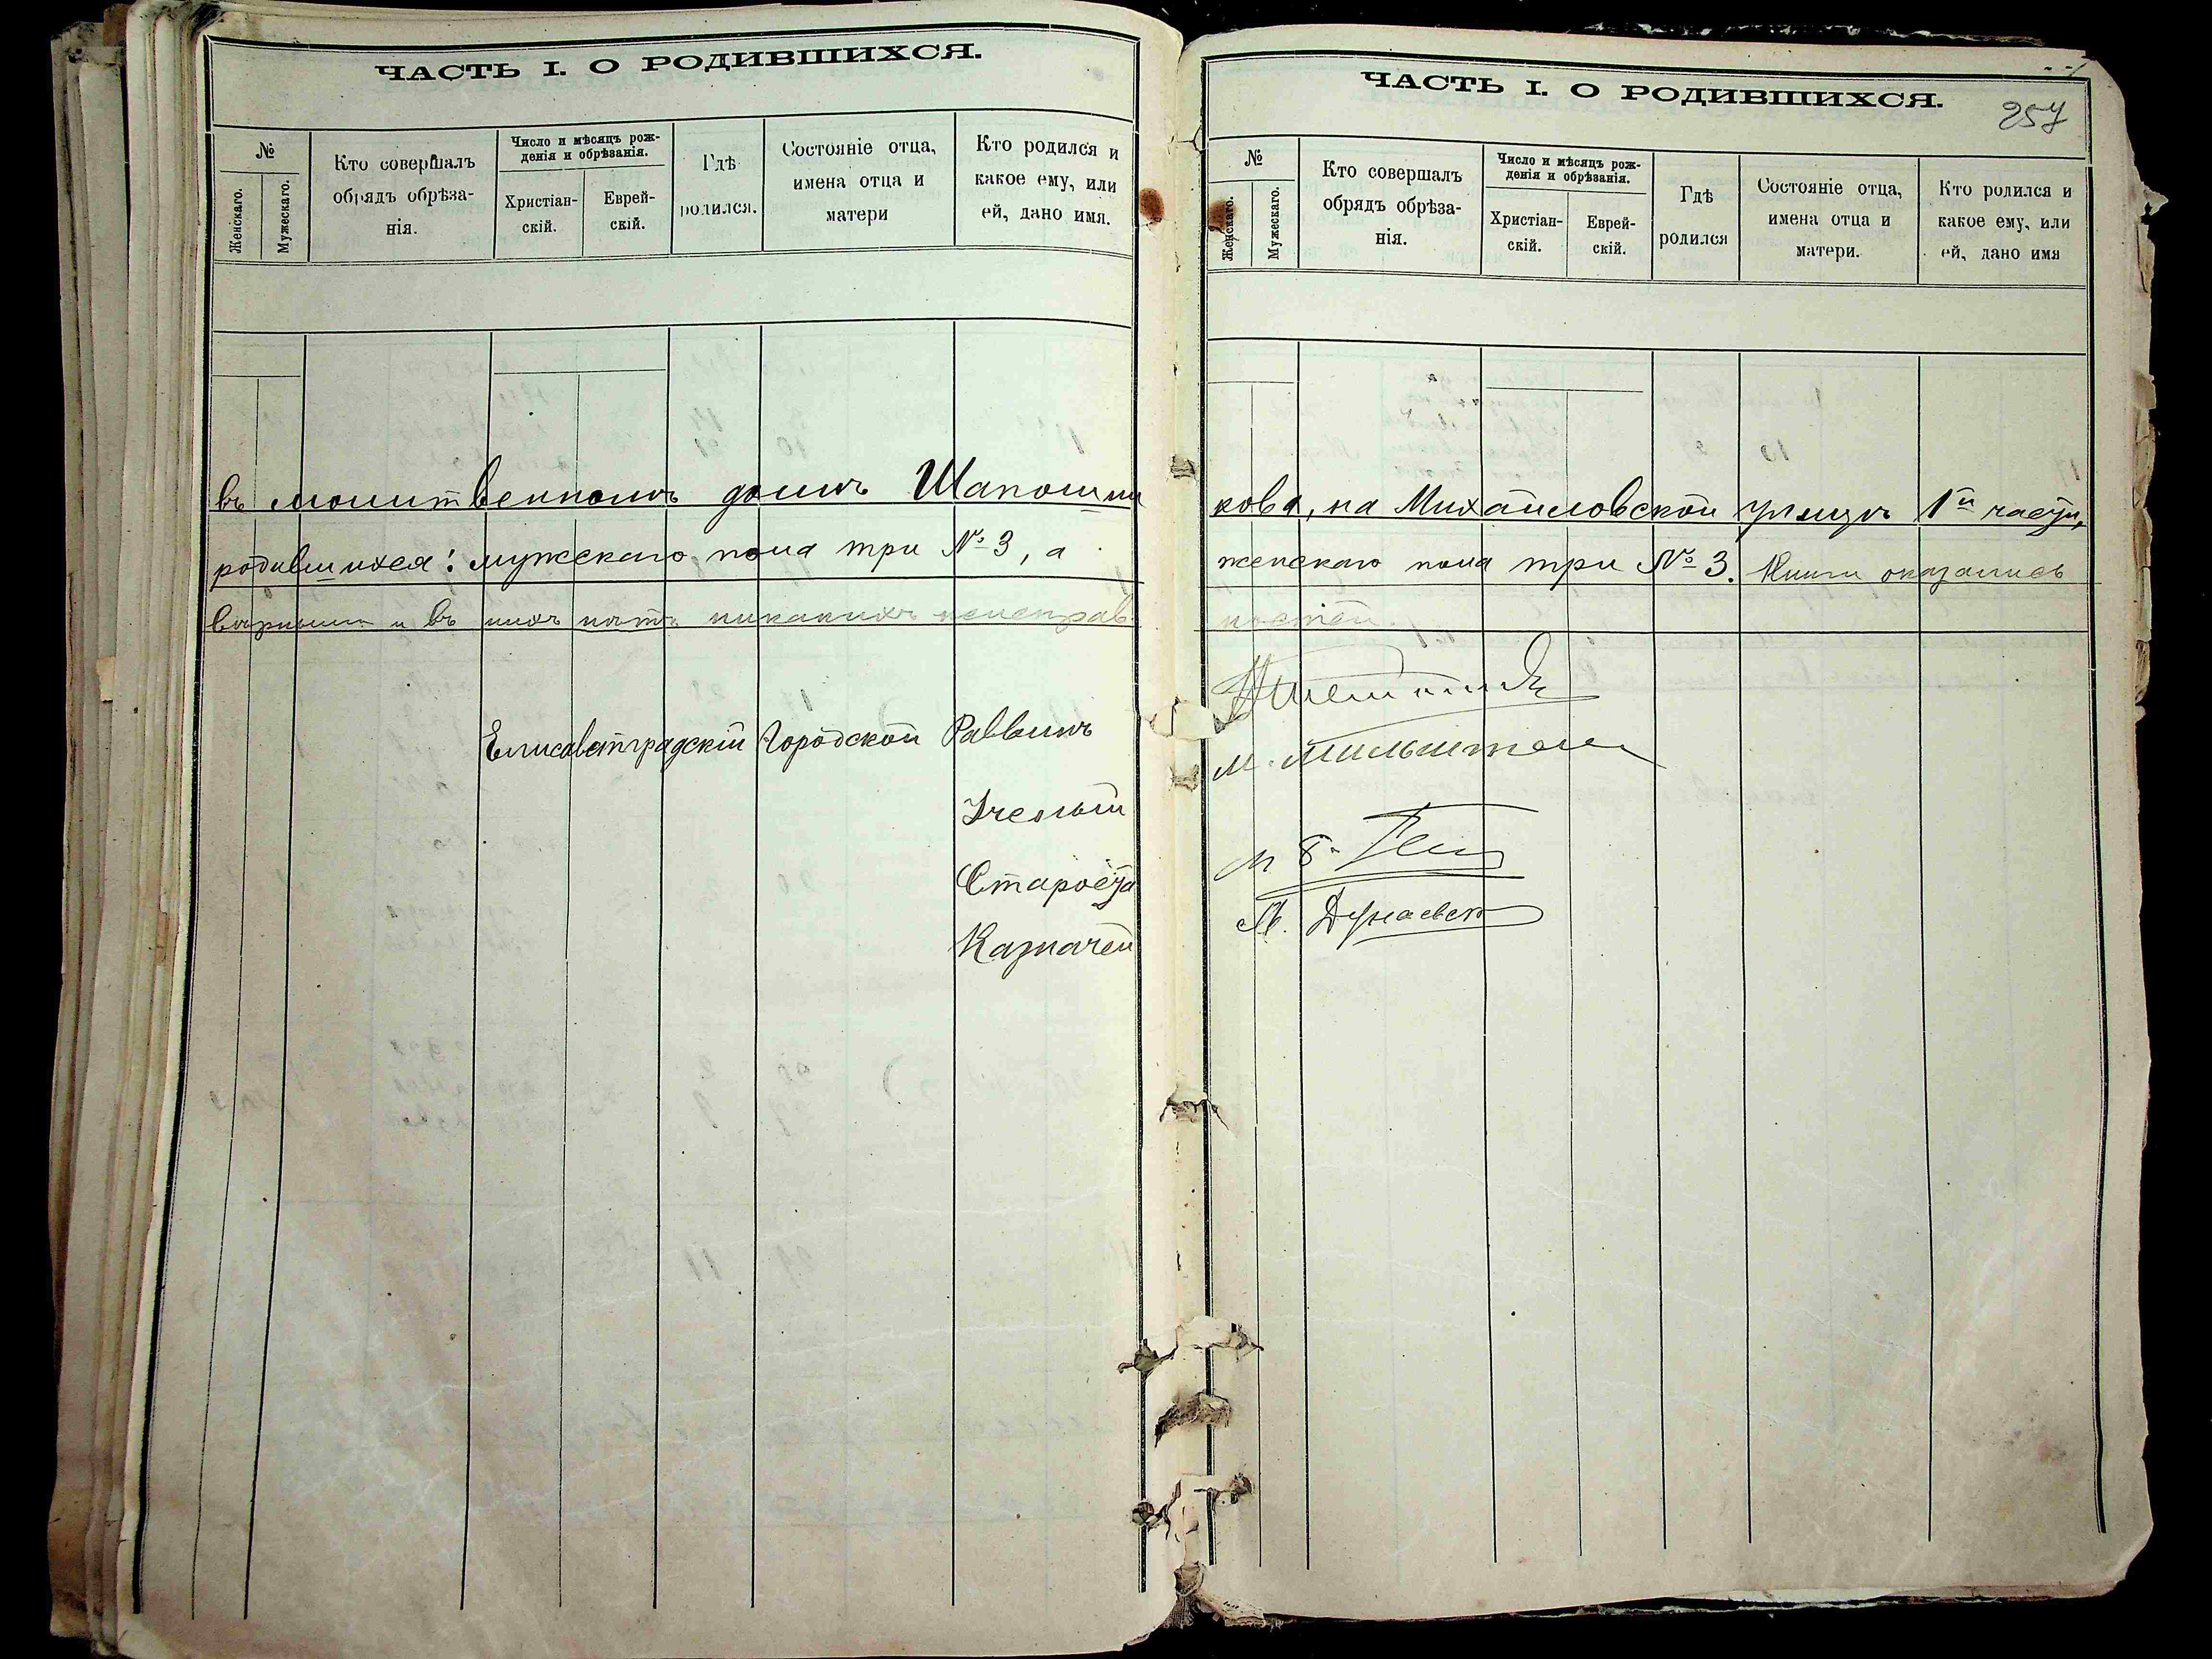 ЧАСТЬ I. О РОДИВШИХСЯ.
№
Женскаго.
Мужескаго.
Кто совершалъ
обрядъ обрѣза-
нія.
Число и мѣсяцъ рож-
денія и обрѣзанія.
Христіан-
скій.
Еврей-
скій.
Гдѣ
родился.
Состояніе отца,
имена отца и
матери
Кто родился и
какое ему, или
ей, дано имя.
въ молитвенномъ домѣ Шапошни
родившихся: мужескаго пола три № 3, а
вѣрными и въ нихъ нѣтъ никакихъ неисправ-
Елисаветградскій Городской Раввинъ
Ученый
Староста
Казначей
ЧАСТЬ I. О РОДИВШИХСЯ.
257
№
Женскаго.
Мужескаго.
Кто совершалъ
обрядъ обрѣза-
нія.
Число и мѣсяцъ рож-
денія и обрѣзанія.
Христіан-
скій.
Еврей-
скій.
Гдѣ
родился
Состояніе отца,
имена отца и
матери.
Кто родился и
какое ему, или
ей, дано имя
кова, на Михайловской улицѣ 1й части,
женскаго пола три № 3. Книги оказались
ностей.
М.
М. Б.
Дунаевск